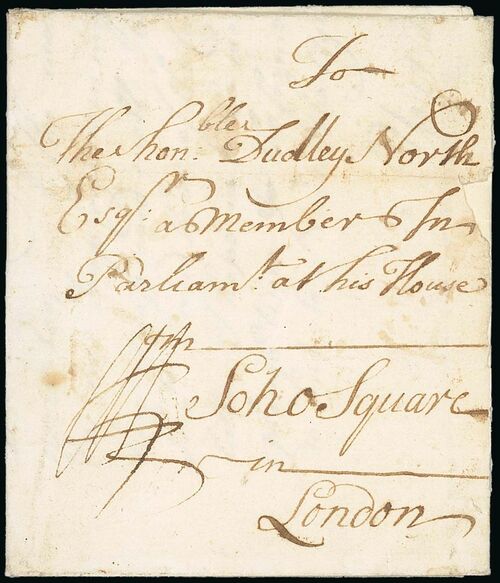 To
The hon.ble Dudley North
Esq.r a Member In
Parliam.t at his House
in
Soho Square
in
London